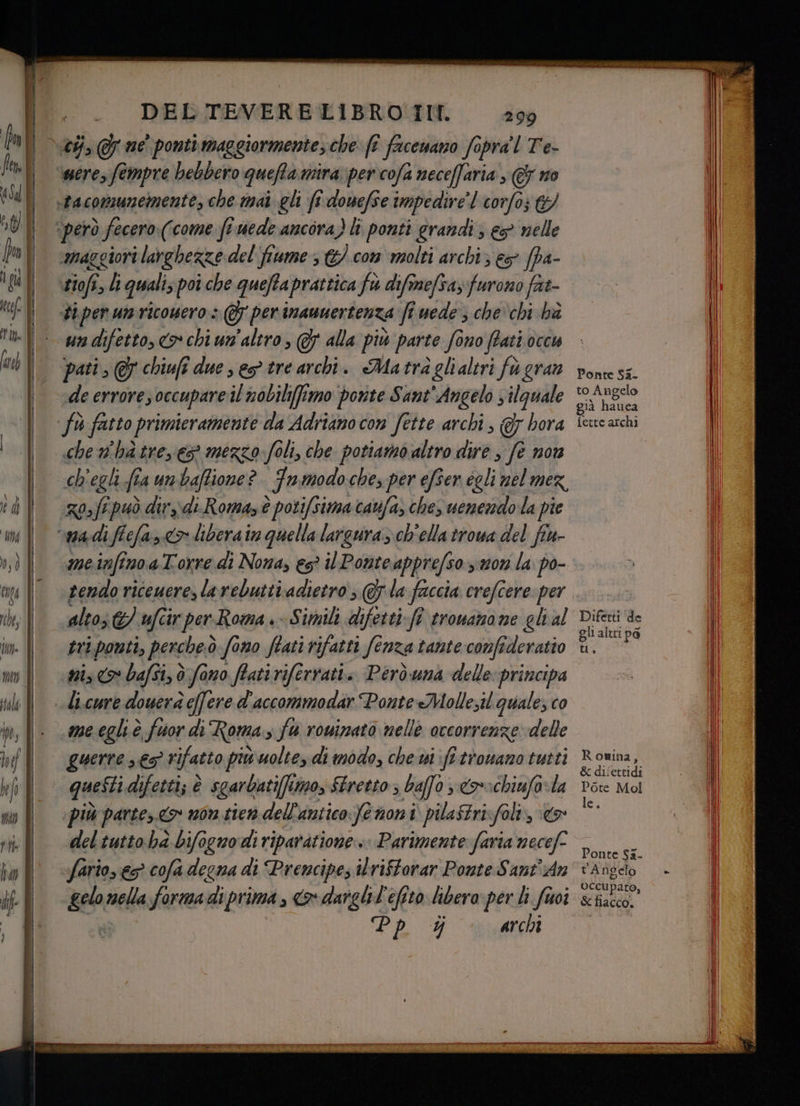 DEL TEVERE LIBRO III. 299
cij, & ne' ponti maggiormente, che si faceuano sopra'l Te-
uere, sempre hebbero questa mira per cosa necessaria, & no
tacomunemente, che mai gli si douesse impedire'l corso; &
però fecero (come si uede ancora) li ponti grandi, & nelle
maggiori larghezze del fiume, & con molti archi, & spa-
tiosi, li quali, poi che questa prattica fù dismessa, furono fat-
ti per un ricouero : & per inauuertenza si uede, che chi hà
un difetto, & chi un'altro, & alla più parte sono stati occu
pati, & chiusi due, & tre archi. Ma trà gli altri fù gran
de errore, occupare il nobilissimo ponte Sant'Angelo, ilquale
fù fatto primieramente da Adriano con sette archi, & hora
che n'hà tre, & mezzo soli, che potiamo altro dire, se non
ch'egli sia un bastione? In modo che, per esser egli nel mez
zo, si può dir, di Roma, è potissima causa, che, uenendo la pie
na distesa, & libera in quella largura, ch'ella troua del fiu-
me insino a Torre di Nona, & il Ponte appresso, non la po-
tendo riceuere, la rebutti adietro, & la faccia crescere per
alto, & uscir per Roma. Simili difetti si trouano ne gli al
tri ponti, perche ò sono stati rifatti senza tante consideratio
ni, & bassi, ò sono stati riserrati. Però una delle principa
li cure douerà essere d'accommodar Ponte Molle, il quale, co
me egli è fuor di Roma, fù rouinato nelle occorrenze delle
guerre, & rifatto più uolte, di modo, che ui si trouano tutti
questi difetti; è sgarbatissimo, stretto, basso, & chiuso la
più parte, & non tien dell'antico se non i pilastri soli, &
del tutto hà bisogno di riparatione. Parimente saria neces-
sario, & cosa degna di Prencipe, il ristorar Ponte Sant'An
gelo nella forma di prima, & dargli l'esito libero per li suoi
Pp ij archi
Ponte Sā-
to Angelo
già hauea
sette archi
Difetti de
gli altri pō
ti.
Rouina,
& difetti di
Pōte Mol
le.
Ponte Sā-
t'Angelo
occupato,
& fiacco.